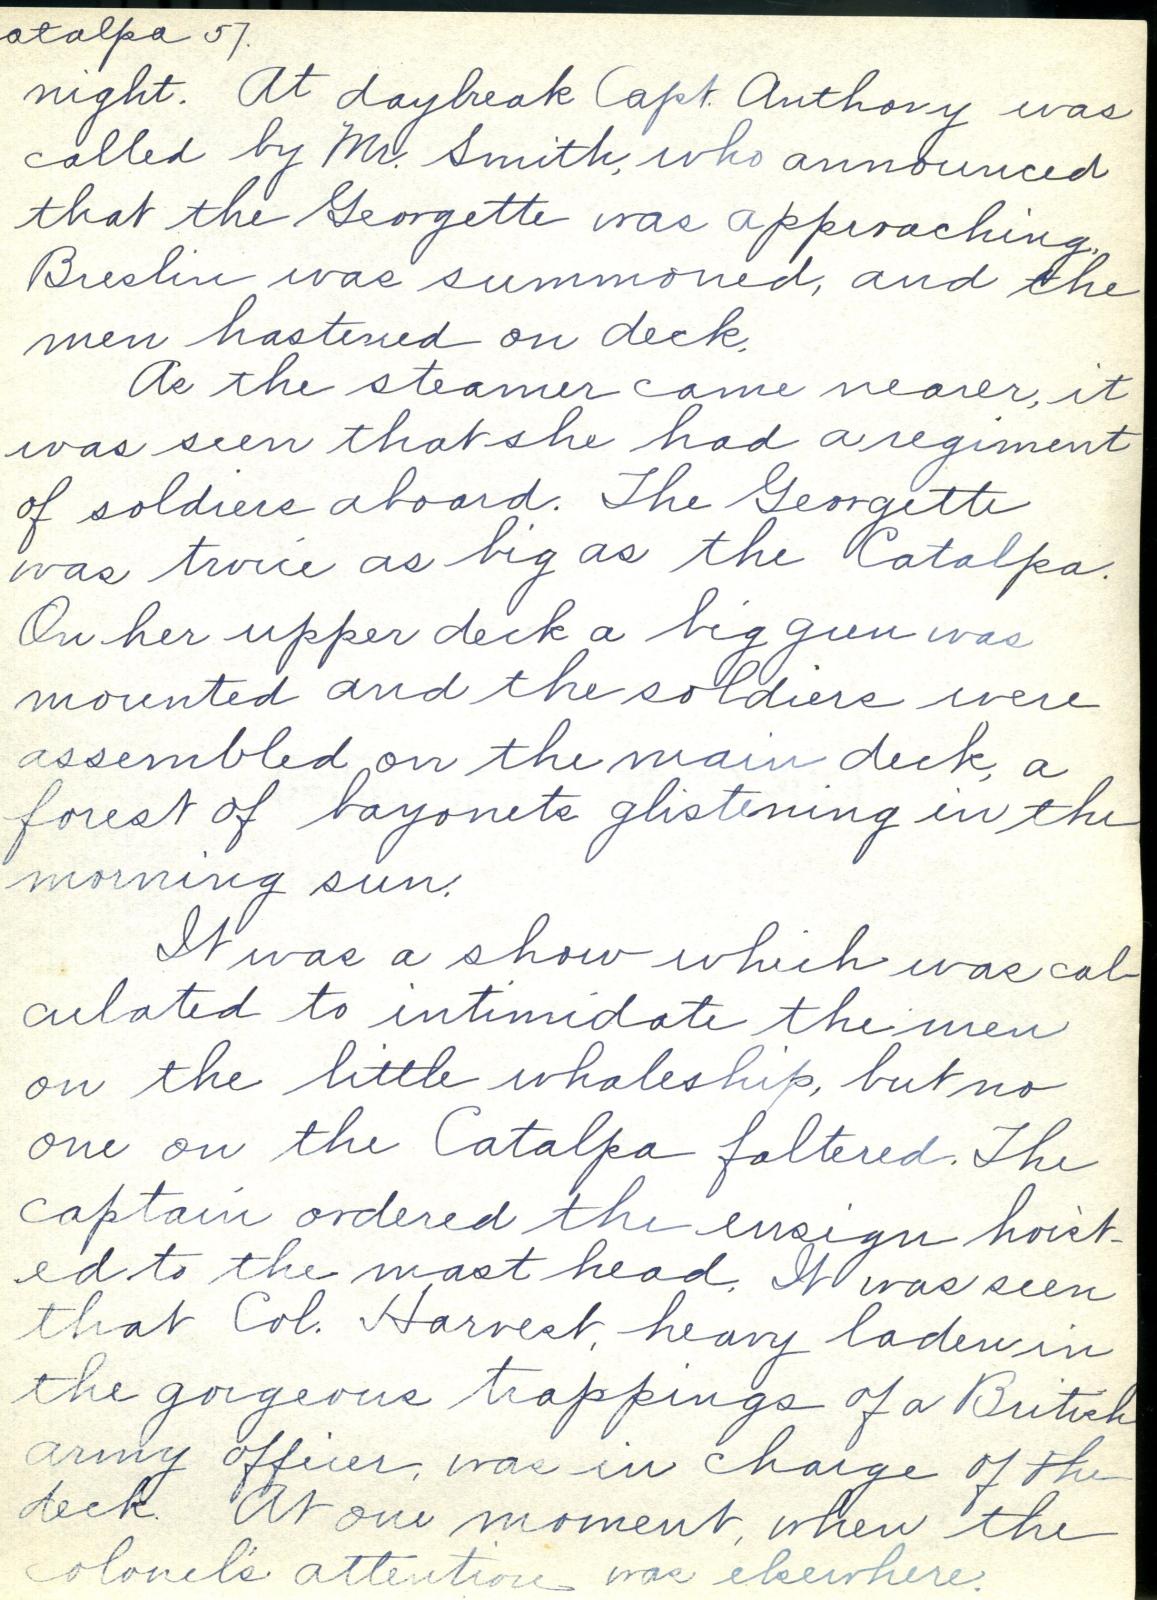 atalpa 57.
night. At daybreak Capt. Anthony was
called by Mr. Smith, who announced
that the Georgette was approaching.
Breslin was summoned, and the
men hastened on deck.
As the steamer came nearer, it
was seen that she had a regiment
of soldiers aboard. The Georgette
was twice as big as the Catalpa.
On her upper deck a big gun was
mounted and the soldiers were
assembled on the main deck, a
forest of bayonets glistening in the
morning sun.
It was a show which was cal-
culated to intimidate the men
on the little whaleship, but no
one on the Catalpa faltered. The
captain ordered the ensign hoist-
ed to the mast head. It was seen
that Col. Harvest, heavy laden in
the gorgeous trappings of a British
army officer, was in charge of the
deck. At one moment, when the
colonel's attention was elsewhere.